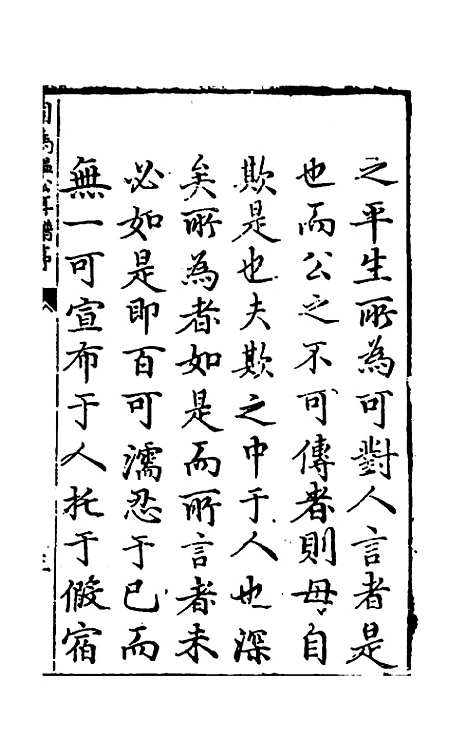 之平生所為可對人言者是
也而公之不可傳者則毋自
欺是也夫欺之中于人也深
矣所為者如是而所言者未
必如是即百可濡忍于已而
無一可宣布于人托于假宿
司馬溫公年譜序